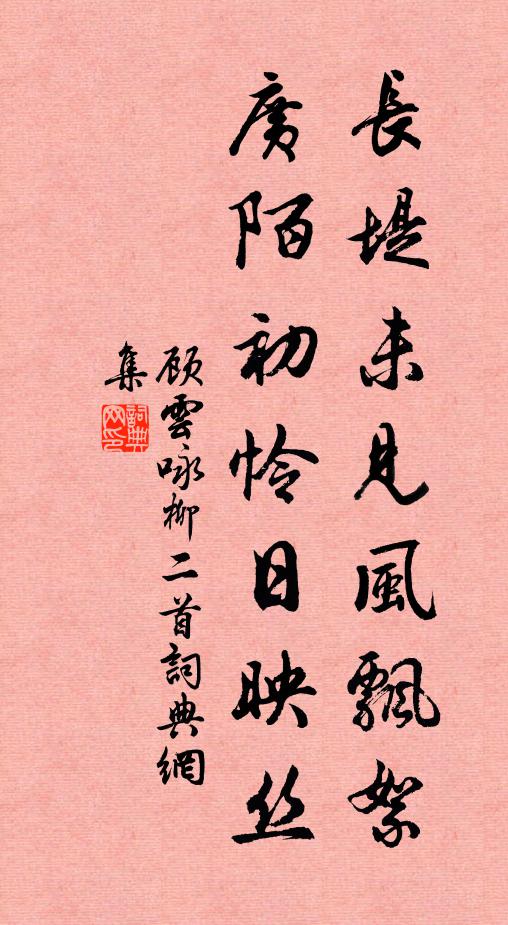 長堤未見風飄絮
廣陌初怜日映丝
顾雲咏柳二首詞典網
集
詞典网印